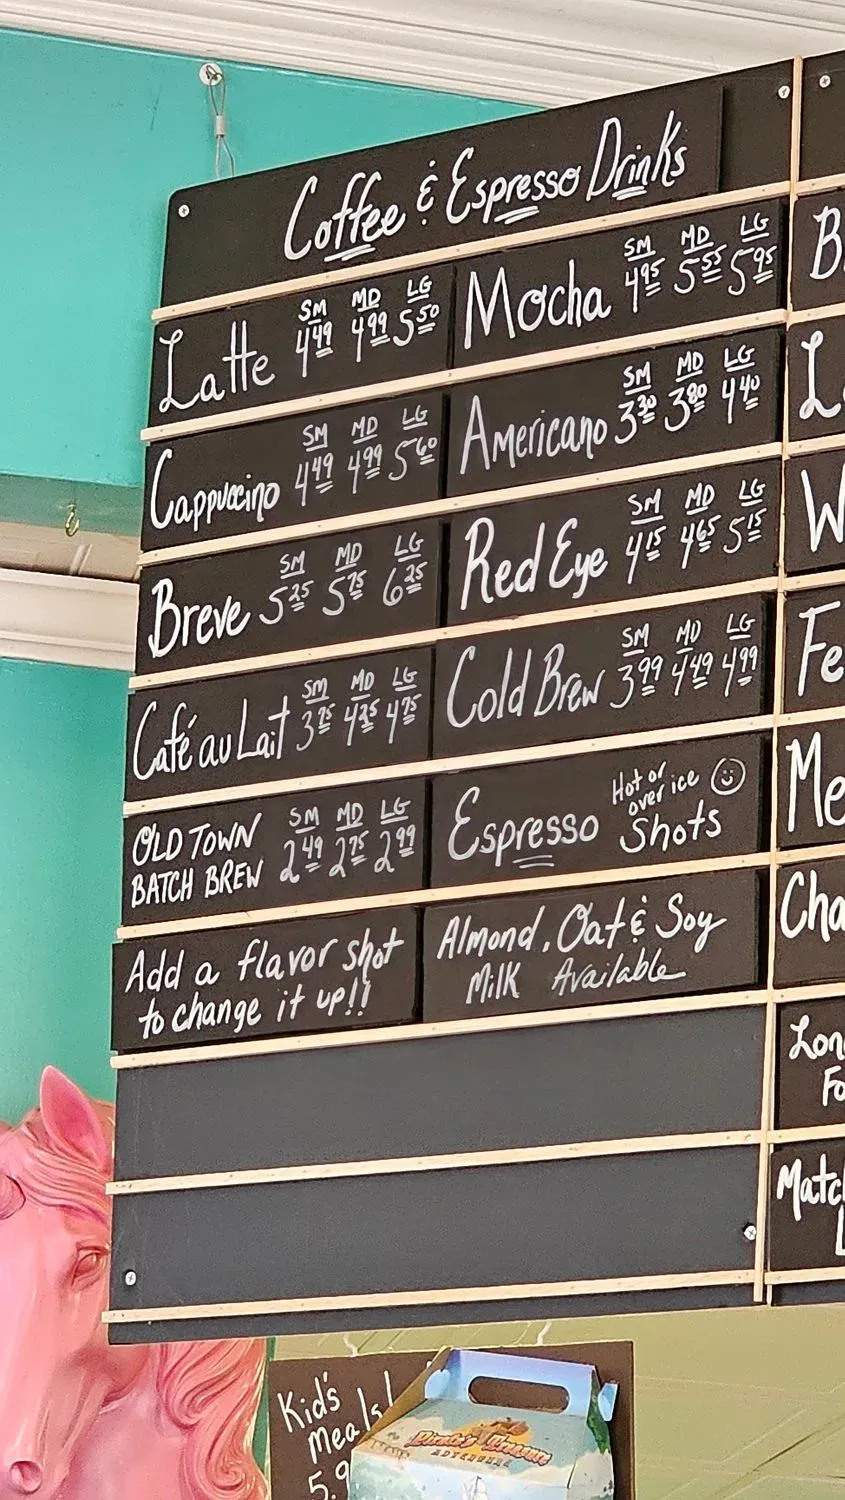 Coffee & Espresso Drinks
Latte SM 4.49 MD 4.99 LG 5.50
Mocha SM 4.95 MD 5.55 LG 5.95
Cappuccino SM 4.49 MD 4.99 LG 5.60
Americano SM 3.30 MD 3.80 LG 4.40
Breve SM 5.25 MD 5.75 LG 6.25
Red Eye SM 4.15 MD 4.65 LG 5.15
Café au Lait SM 3.75 MD 4.25 LG 4.75
Cold Brew SM 3.99 MD 4.49 LG 4.99
OLD TOWN
BATCH BREW SM 2.49 MD 2.75 LG 2.99
Espresso Hot or
over ice
Shots
Add a flavor shot
to change it up!!
Almond, Oat & Soy
Milk Available
B
L
W
Fe
Me
Cha
Lon
Fo
Matc
L
Kid's
Meals!
5.9
Pirate's Treasure
ADVENTURE